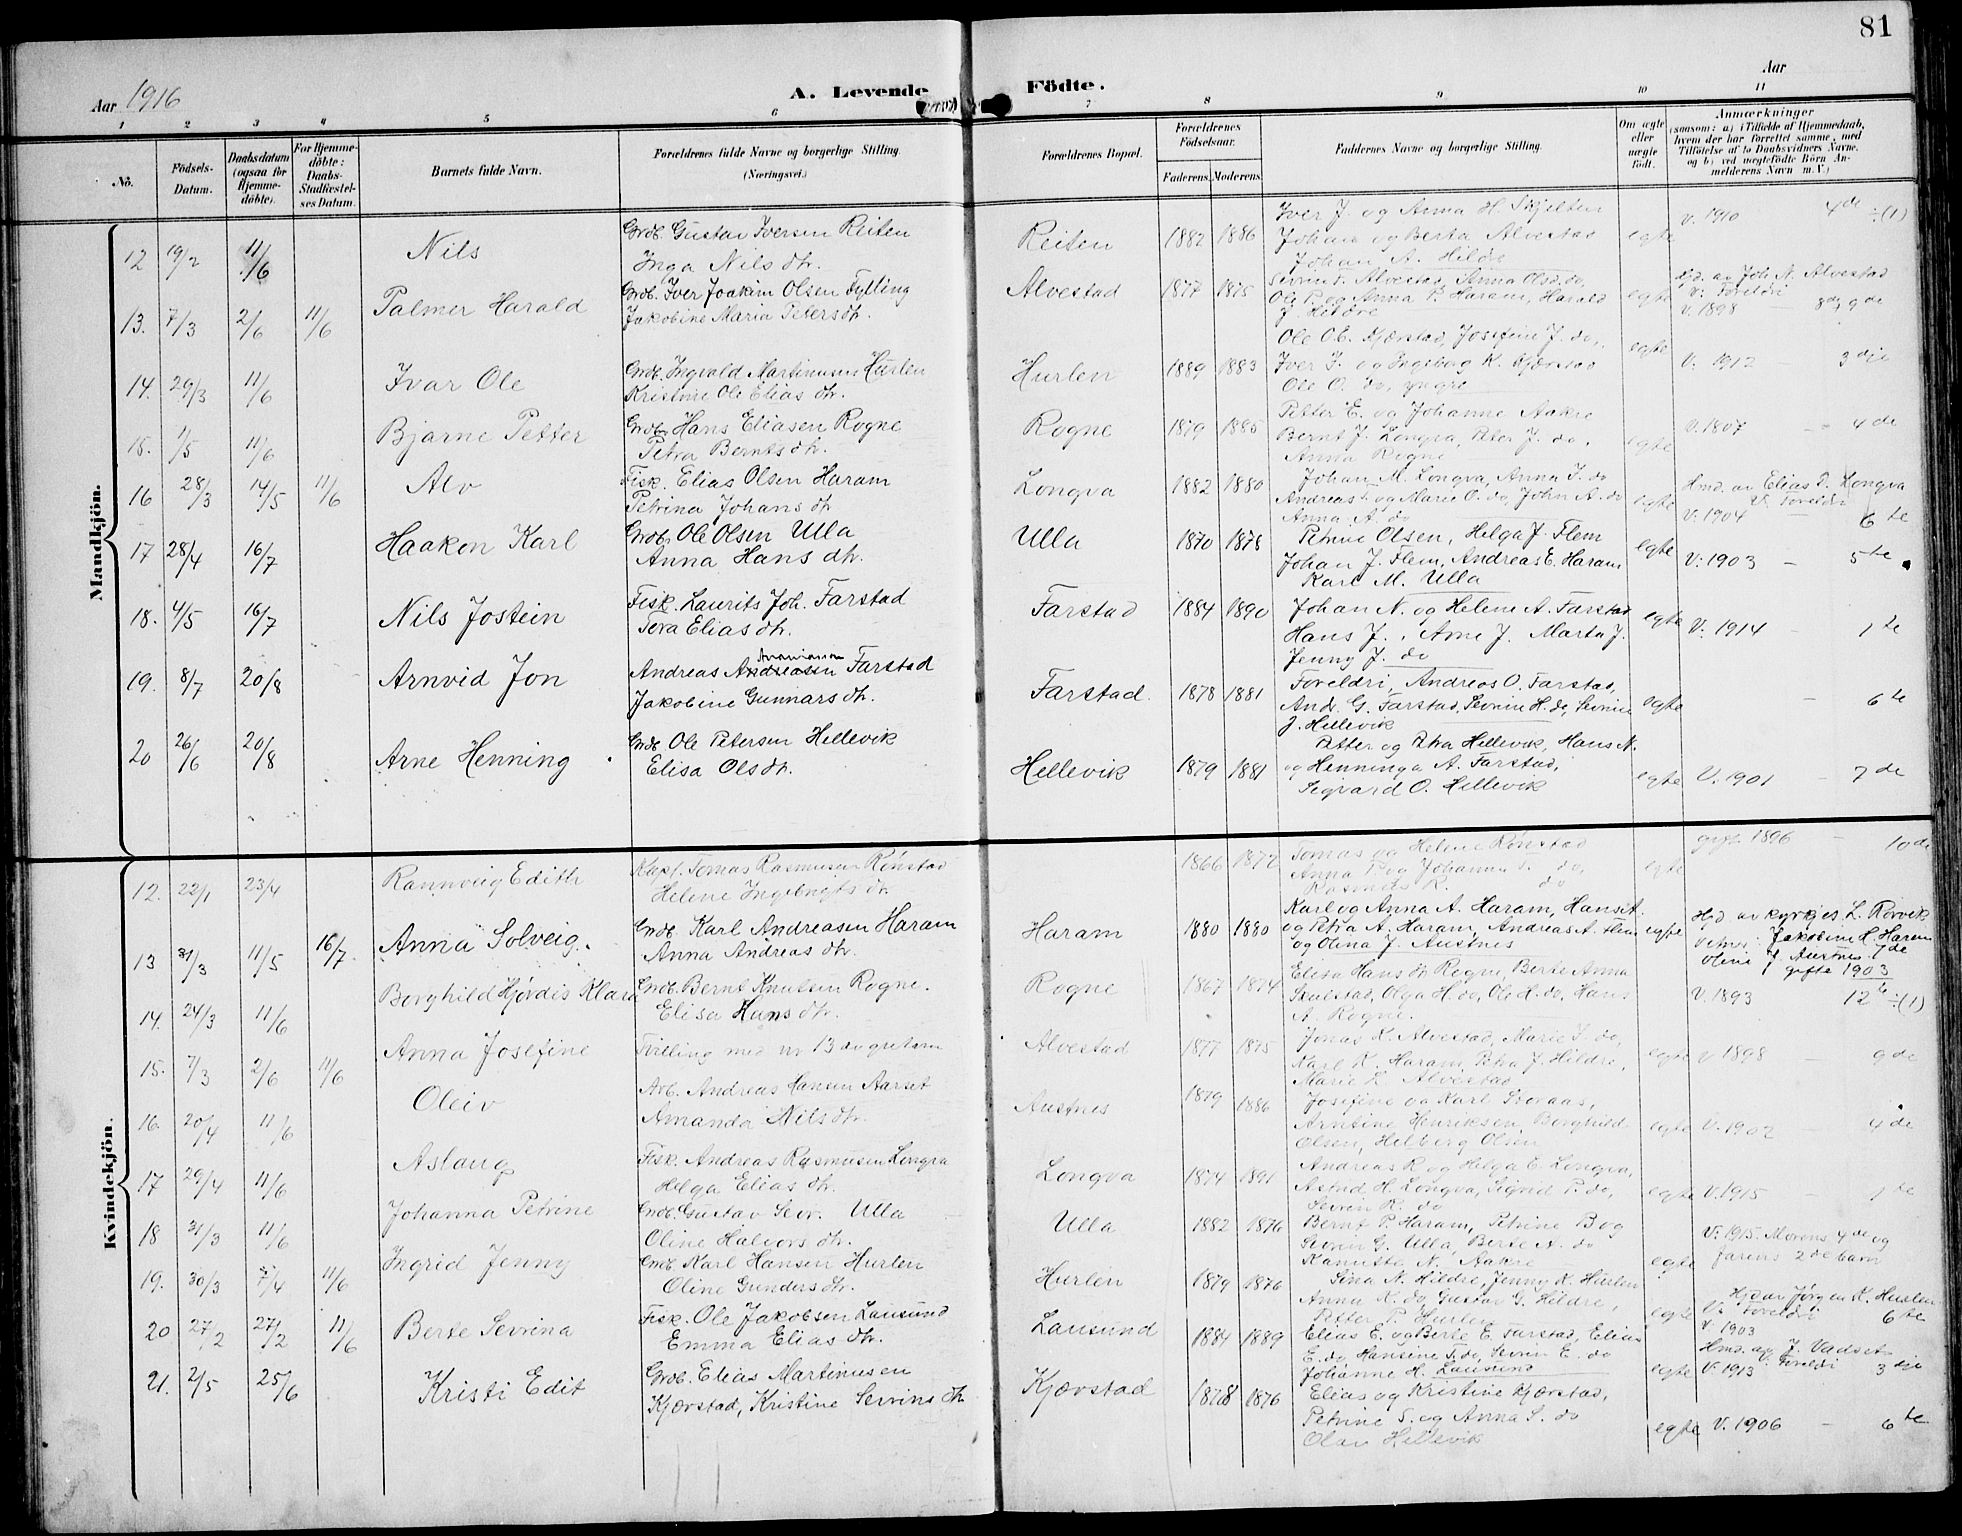 81
Aar 1916
A. Levende Födte.
Aar
1 2 3 4 5 6 7 8 9 10 11
No.
Födsels-Datum.
Daabsdatum (ogsaa for Hjemme-döbte).
For Hjemme-döbte: Daabs-Stadfæstel-ses Datum.
Barnets fulde Navn.
Forældrenes fulde Navne og borgerlige Stilling.
(Næringsvei.)
Forældrenes Bopæl.
Forældrenes Födselsaar.
Faderens. Moderens.
Faddernes Navne og borgerlige Stilling.
Om ægte eller uægte födt.
Anmærkninger
(saasom: a) i Tilfælde af Hjemmedaab,
hvem der har forrettet samme, med
Tilföielse af to Daabsvidners Navne,
og b) ved uægtefödte Börn An-
melderens Navn m.V.)
Mandkjön.
12 19/2 11/6 Nils Grdb. Gustav Iversen Reiten
Inga Nils dtr. Reiten 1882 1886 Iver J. og Anna H. Skjelten
Johan og Berta Alvestad
Johan A. Hildre egte V. 1910 4de ÷(1)
13. 7/3 2/6 11/6 Palmer Harald Grdb. Iver Joakim Olsen Fylling
Jakobine Maria Peters dtr. Alvestad 1877 1875 Sevrin P. Alvestad,
Ole P. og Anna P. Haram, Harald
J. Hildre egte Hjd. av Joh. N. Alvestad
V: Foreldri
V. 1898 9de
14. 29/3 11/6 Ivar Ole Grdb. Ingvald Martinusen Hurlen
Kristine Ole Elias dtr. Hurlen 1889 1883 Ole O.E. Kjærstad, Josefine J. do,
Iver J. og Ingeborg K. Kjærstad
Ole O. do, yngre egte V. 1912 3dje
15. 1/5 11/6 Bjarne Petter Grdb. Hans Eliasen Rogne
Petra Bernts dtr. Rogne 1879 1885 Petter E. og Johanne Aakre
Bernt J. Longva, Peter J. do,
Anna Rogne egte V. 1807 4de
16 28/3 14/5 11/6 Alv Fisk. Elias Olsen Haram
Petrina Johans dtr Longva 1882 1880 Johan M. Longva, Anna J. do
Andreas og Marie O. do, John A. do
Anna A. do egte Hmd. av Elias O. Longva
V. Foreldri
V. 1904 6te
17 28/4 16/7 Haakon Karl Grdb. Ole Olsen Ulla
Anna Hans dtr. Ulla 1870 1878 Petrine Olsen, Helga J. Flem
Johan J. Flem, Andreas E. Haram
Karl M. Ulla egte V: 1903 - 5te
18. 4/5 16/7 Nils Jostein Fisk. Laurits Joh. Farstad
Tora Elias dtr. Farstad 1884 1890 Johan N. og Helene A. Farstad
Hans J., Arne J. Marta J.
Jenny J. do egte V. 1914 - 1te
19. 8/7 20/8 Arnvid Jon Andreas Andreasen Farstad
Jakobine Gunnars dtr. Farstad. 1878 1881 Foreldri, Andreas O. Farstad,
And. G. Farstad, Sevrine H. do, Sevrine
J. Hellevik egte - 6te
20 26/6 20/8 Arne Henning Grdb Ole Petersen Hellevik
Elisa Ols dtr. Hellevik 1879 1881 Petter og Petra Hellevik, Hans N.
og Henninga A. Farstad,
Segvard O. Hellevik egte V. 1901 - 7de
Kvindekjön.
12. 22/1 23/4 Rannveig Edith Kapt. Tomas Rasmusen Rönstad
Helene Ingebrigts dtr 1866 1872 Tomas og Helene Rönstad
Anna P. og Johanna T. do,
Rasmus R. do egte gift 1896 - 10de
13 31/3 11/5 16/7 Anna Solveig. Grdb. Karl Andreasen Haram
Anna Andreas dtr. Haram 1880 1880 Karl og Anna A. Haram, Hans A.
og Petra A. Haram, Andreas A. Flem
og Olina J. Austnes egte Hjd av kyrkjes. L. Rörvik
vitner: Jakobine H. Haram
Oline J. Austnes. 7de
gifte 1903
14. 24/3 11/6 Borghild Hjördis Klara Grdb. Bernt Knutsen Rogne.
Elisa Hans dtr. Rogne 1867 1874 Elisa Hans dtr Rogne, Berte Anna
Skulstad, Olga H. do, Ole H. do, Hans
A. Rogne. V. 1893 12te ÷(1)
15. 7/3 2/6 11/6 Anna Josefine Tvilling med nr 13 av gutarn Alvestad 1877 1875 Jonas K. Alvestad, Marie J. do,
Karl K. Haram, Petra J. Hildre,
Marie K. Alvestad egte V 1898 - 9de
16. 20/4 11/6 Oleiv Arb. Andreas Hansen Aarset
Amanda Nils dtr. Austnes 1879 1886 Josefine og Karl Sveraas,
Arntine Henriksen, Borghild
Olsen, Helberg Olsen egte V. 1902 - 4de
17 29/4 11/6 Aslaug Fisk. Andreas Rasmusen Longva
Helga Elias dtr. Longva 1874 1891 Andreas R. og Helga E. Longva,
Astrid H. Longva, Sigrid P. do,
Sevrin R. do egte V. 1915 - 1te
18 31/3 11/6 Johanna Petrine Grdb. Gustav Sevr. Ulla
Oline Halvors dtr. Ulla 1882 1876 Bernt P. Haram, Petrine B og
Sevrin G. Ulla, Berte A. do
Kanutte N. Aakre egte V: 1915. Morens 4de og
farens 2de barn
19. 30/3 7/4 11/6 Ingrid Jenny Grdb Karl Hansen Hurlen
Oline Gunders dtr. Hurlen 1879 1876 Sina A. Hildre, Jenny K. Hurlen
Anna K. do, Gustav G. Hildre,
Petter P. Hurlen egte Hjd av Jörgen K. Hurlen
V: Foreldri 6te
V. 1903
20 27/2 27/2 11/6 Berte Sevrina Fisk. Ole Jakobsen Lausund
Emma Elias dtr. Lausund 1884 1889 Elias E. og Berte E. Farstad, Elias
E. do Hansine T. do, Sevrin E. do
Johanne H. Lausund egte Hmd. av J. Vadset
V. 1913 Foreldri 3dje
21. 2/5 25/6 Kristi Edit Grdb. Elias Martinusen
Kjærstad, Kristine Sevrins dtr Kjærstad 1878 1876 Elias og Kristine Kjærstad,
Petrine S. og Anna S. do
Olav Hellevik egte V. 1906 - 6te